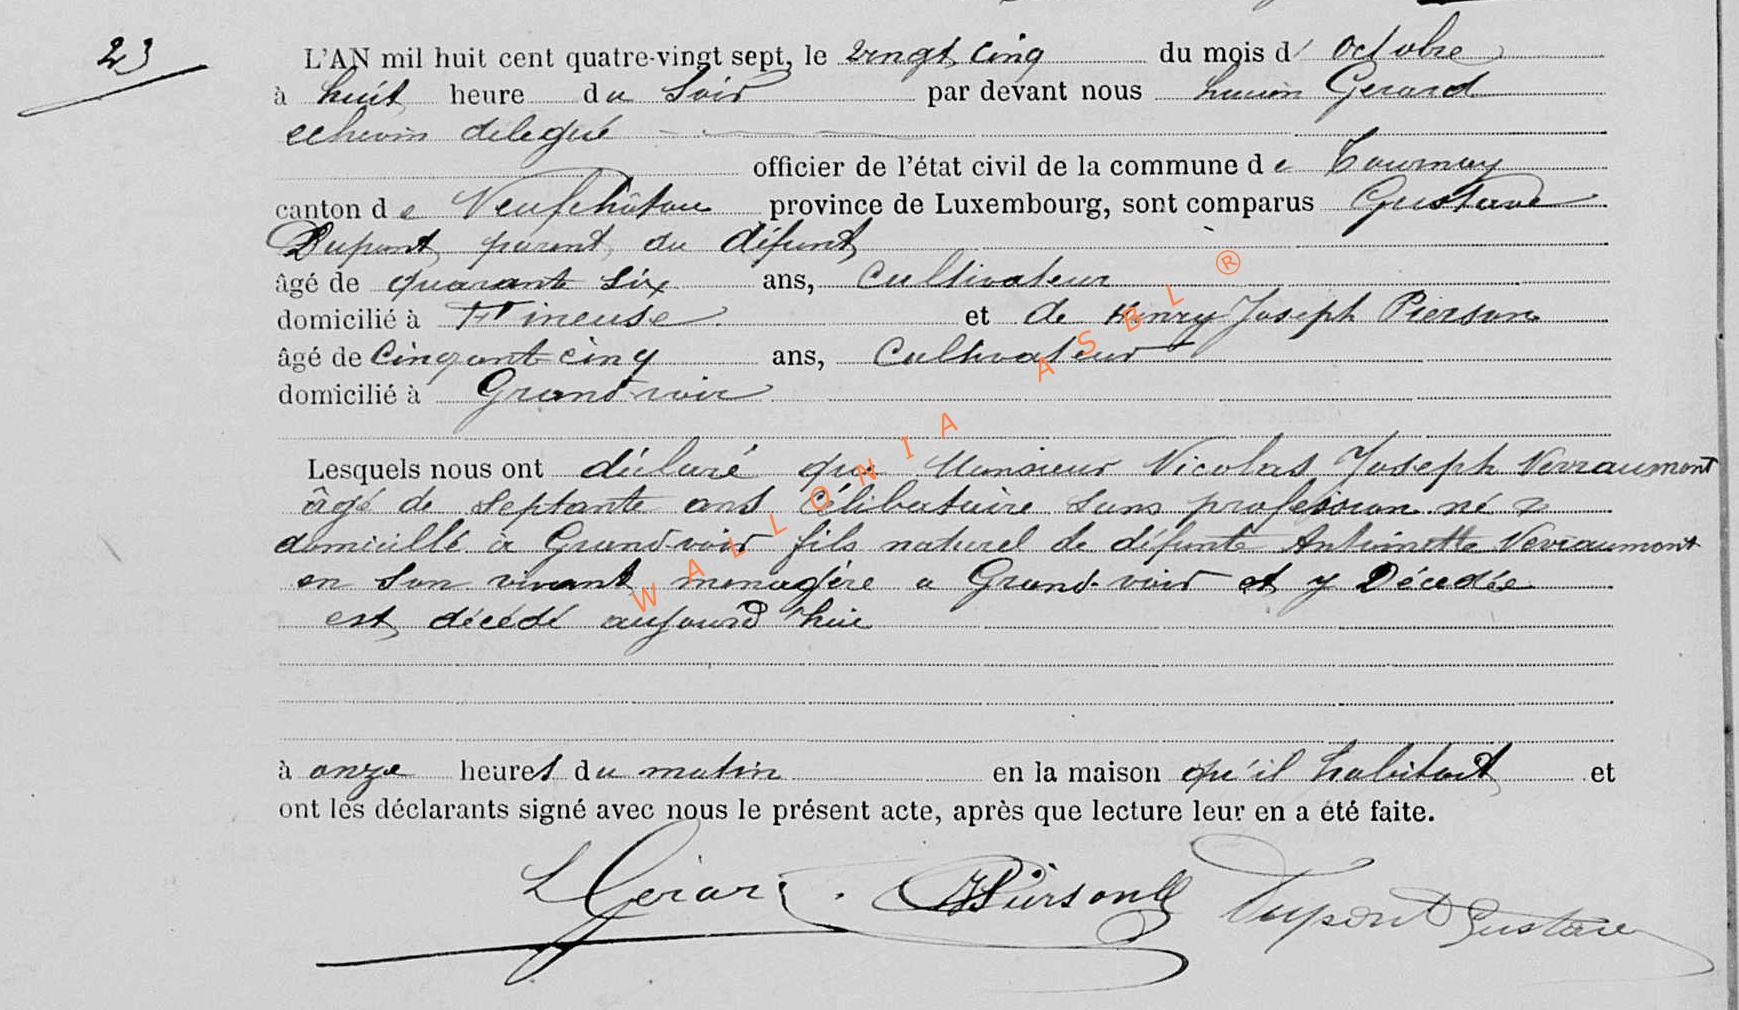 23
L'AN mil huit cent quatre-vingt sept, le vingt cinq du mois d' octobre
à huit heure du soir par devant nous Lucien Gerard
echevin délegué
officier de l'état civil de la commune de Tournay
canton de Neufchâteau province de Luxembourg, sont comparus Gustave
Dupont, parent du défunt
âgé de quarante six ans, Cultivateur
domicilié à Fineuse et de Henry Joseph Pierson
âgé de Cinquante cinq ans, Cultivateur
domicilié à Grand-voir
Lesquels nous ont déclaré que Monsieur Nicolas Joseph Vervaumont
âgé de septante ans célibataire sans profession né &
domicilié à Grand-voir fils naturel de défunte Antoinette Vervaumont
en son vivant menagère a Grand-voir et y Décedée
est décédé aujourd'hui
à onze heures du matin en la maison qu'il habitait et
ont les déclarants signé avec nous le présent acte, après que lecture leur en a été faite.
L Gérard. Pierson Dupont Gustave
WALLONIA ASBL ®